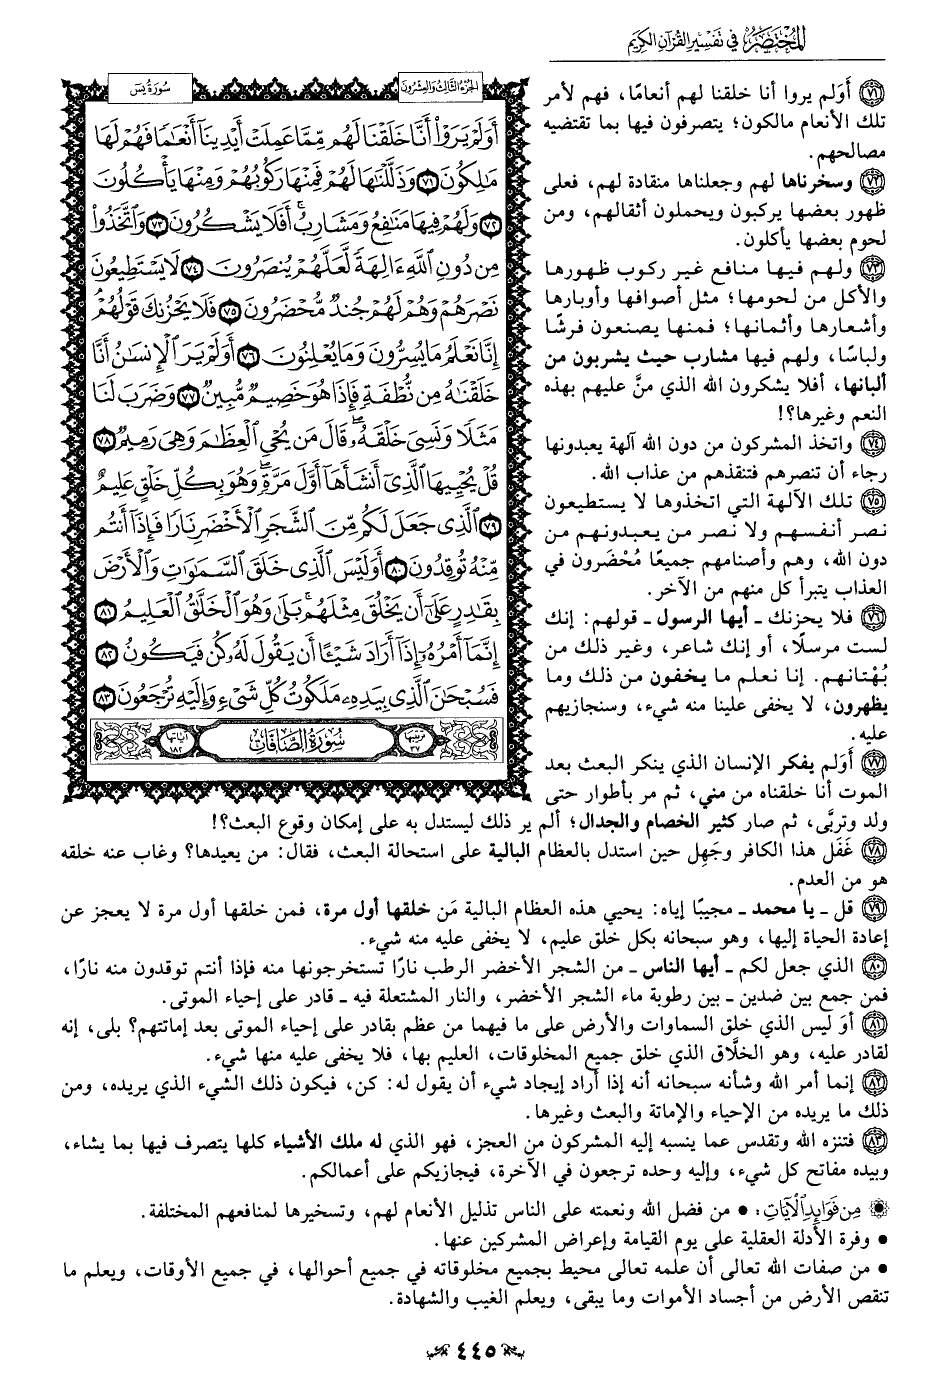 المختصر في تفسير القرآن الكريم
الجزء الثالث والعشرون
سورة يس
أَوَلَمْ يَرَوْا۟ أَنَّا خَلَقْنَا لَهُم مِّمَّا عَمِلَتْ أَيْدِينَآ أَنْعَـٰمًا فَهُمْ لَهَا
مَـٰلِكُونَ ٧١ وَذَلَّلْنَـٰهَا لَهُمْ فَمِنْهَا رَكُوبُهُمْ وَمِنْهَا يَأْكُلُونَ
٧٢ وَلَهُمْ فِيهَا مَنَـٰفِعُ وَمَشَارِبُ ۖ أَفَلَا يَشْكُرُونَ ٧٣ وَٱتَّخَذُوا۟
مِن دُونِ ٱللَّهِ ءَالِهَةً لَّعَلَّهُمْ يُنصَرُونَ ٧٤ لَا يَسْتَطِيعُونَ
نَصْرَهُمْ وَهُمْ لَهُمْ جُندٌ مُّحْضَرُونَ ٧٥ فَلَا يَحْزُنكَ قَوْلُهُمْ ۘ
إِنَّا نَعْلَمُ مَا يُسِرُّونَ وَمَا يُعْلِنُونَ ٧٦ أَوَلَمْ يَرَ ٱلْإِنسَـٰنُ أَنَّا
خَلَقْنَـٰهُ مِن نُّطْفَةٍ فَإِذَا هُوَ خَصِيمٌ مُّبِينٌ ٧٧ وَضَرَبَ لَنَا
مَثَلًا وَنَسِىَ خَلْقَهُۥ ۖ قَالَ مَن يُحْىِ ٱلْعِظَـٰمَ وَهِىَ رَمِيمٌ ٧٨
قُلْ يُحْيِيهَا ٱلَّذِىٓ أَنشَأَهَآ أَوَّلَ مَرَّةٍ ۖ وَهُوَ بِكُلِّ خَلْقٍ عَلِيمٌ
٧٩ ٱلَّذِى جَعَلَ لَكُم مِّنَ ٱلشَّجَرِ ٱلْأَخْضَرِ نَارًا فَإِذَآ أَنتُم
مِّنْهُ تُوقِدُونَ ٨٠ أَوَلَيْسَ ٱلَّذِى خَلَقَ ٱلسَّمَـٰوَٰتِ وَٱلْأَرْضَ
بِقَـٰدِرٍ عَلَىٰٓ أَن يَخْلُقَ مِثْلَهُم ۚ بَلَىٰ وَهُوَ ٱلْخَلَّـٰقُ ٱلْعَلِيمُ ٨١
إِنَّمَآ أَمْرُهُۥٓ إِذَآ أَرَادَ شَيْـًٔا أَن يَقُولَ لَهُۥ كُن فَيَكُونُ ٨٢
فَسُبْحَـٰنَ ٱلَّذِى بِيَدِهِۦ مَلَكُوتُ كُلِّ شَىْءٍ وَإِلَيْهِ تُرْجَعُونَ ٨٣
ترتيبها ٣٧
سورة الصافات
آياتها ١٨٢
٧١ أَوَلم يروا أنا خلقنا لهم أنعامًا، فهم لأمر
تلك الأنعام مالكون؛ يتصرفون فيها بما تقتضيه
مصالحهم.
٧٢ وسخرناها لهم وجعلناها منقادة لهم، فعلى
ظهور بعضها يركبون ويحملون أثقالهم، ومن
لحوم بعضها يأكلون.
٧٣ ولهم فيها منافع غير ركوب ظهورها
والأكل من لحومها؛ مثل أصوافها وأوبارها
وأشعارها وأثمانها؛ فمنها يصنعون فرشًا
ولباسًا، ولهم فيها مشارب حيث يشربون من
ألبانها، أفلا يشكرون الله الذي منَّ عليهم بهذه
النعم وغيرها؟!
٧٤ واتخذ المشركون من دون الله آلهة يعبدونها
رجاء أن تنصرهم فتنقذهم من عذاب الله.
٧٥ تلك الآلهة التي اتخذوها لا يستطيعون
نصر أنفسهم ولا نصر من يعبدونهم من
دون الله، وهم وأصنامهم جميعًا مُحْضَرون في
العذاب يتبرأ كل منهم من الآخر.
٧٦ فلا يحزنك ـ أيها الرسول ـ قولهم: إنك
لست مرسلًا، أو إنك شاعر، وغير ذلك من
بُهْتانهم. إنا نعلم ما يخفون من ذلك وما
يظهرون، لا يخفى علينا منه شيء، وسنجازيهم
عليه.
٧٧ أَوَلم يفكر الإنسان الذي ينكر البعث بعد
الموت أنا خلقناه من مني، ثم مر بأطوار حتى
ولد وتربَّى، ثم صار كثير الخصام والجدال؛ ألم ير ذلك ليستدل به على إمكان وقوع البعث؟!
٧٨ غَفَل هذا الكافر وجَهِل حين استدل بالعظام البالية على استحالة البعث، فقال: من يعيدها؟ وغاب عنه خلقه
هو من العدم.
٧٩ قل ـ يا محمد ـ مجيبًا إياه: يحيي هذه العظام البالية مَن خلقها أول مرة، فمن خلقها أول مرة لا يعجز عن
إعادة الحياة إليها، وهو سبحانه بكل خلق عليم، لا يخفى عليه منه شيء.
٨٠ الذي جعل لكم ـ أيها الناس ـ من الشجر الأخضر الرطب نارًا تستخرجونها منه فإذا أنتم توقدون منه نارًا،
فمن جمع بين ضدين ـ بين رطوبة ماء الشجر الأخضر، والنار المشتعلة فيه ـ قادر على إحياء الموتى.
٨١ أوَ ليس الذي خلق السماوات والأرض على ما فيهما من عظم بقادر على إحياء الموتى بعد إماتتهم؟ بلى، إنه
لقادر عليه، وهو الخلَّاق الذي خلق جميع المخلوقات، العليم بها، فلا يخفى عليه منها شيء.
٨٢ إنما أمر الله وشأنه سبحانه أنه إذا أراد إيجاد شيء أن يقول له: كن، فيكون ذلك الشيء الذي يريده، ومن
ذلك ما يريده من الإحياء والإماتة والبعث وغيرها.
٨٣ فتنزه الله وتقدس عما ينسبه إليه المشركون من العجز، فهو الذي له ملك الأشياء كلها يتصرف فيها بما يشاء،
وبيده مفاتح كل شيء، وإليه وحده ترجعون في الآخرة، فيجازيكم على أعمالكم.
من فوائد الآيات: • من فضل الله ونعمته على الناس تذليل الأنعام لهم، وتسخيرها لمنافعهم المختلفة.
• وفرة الأدلة العقلية على يوم القيامة وإعراض المشركين عنها.
• من صفات الله تعالى أن علمه تعالى محيط بجميع مخلوقاته في جميع أحوالها، في جميع الأوقات، ويعلم ما
تنقص الأرض من أجساد الأموات وما يبقى، ويعلم الغيب والشهادة.
٤٤٥